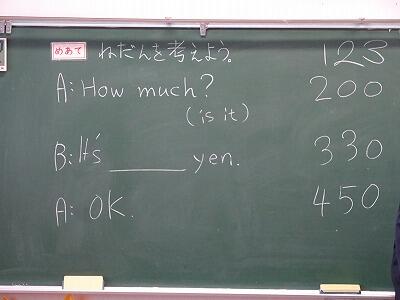 めあて ねだんを考えよう。 123
A: How much? 200
(is it)
B: It's ______ yen. 330
A: OK. 450